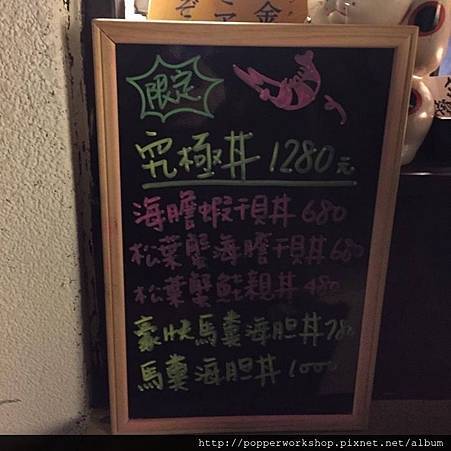 限定
究極丼 1280元
海膽蝦干貝丼 680
松葉蟹海膽干貝丼 680
松葉蟹鮭親丼 480
豪快馬糞海胆丼 780
馬糞海胆丼 1000
http://popperworkshop.pixnet.net/album